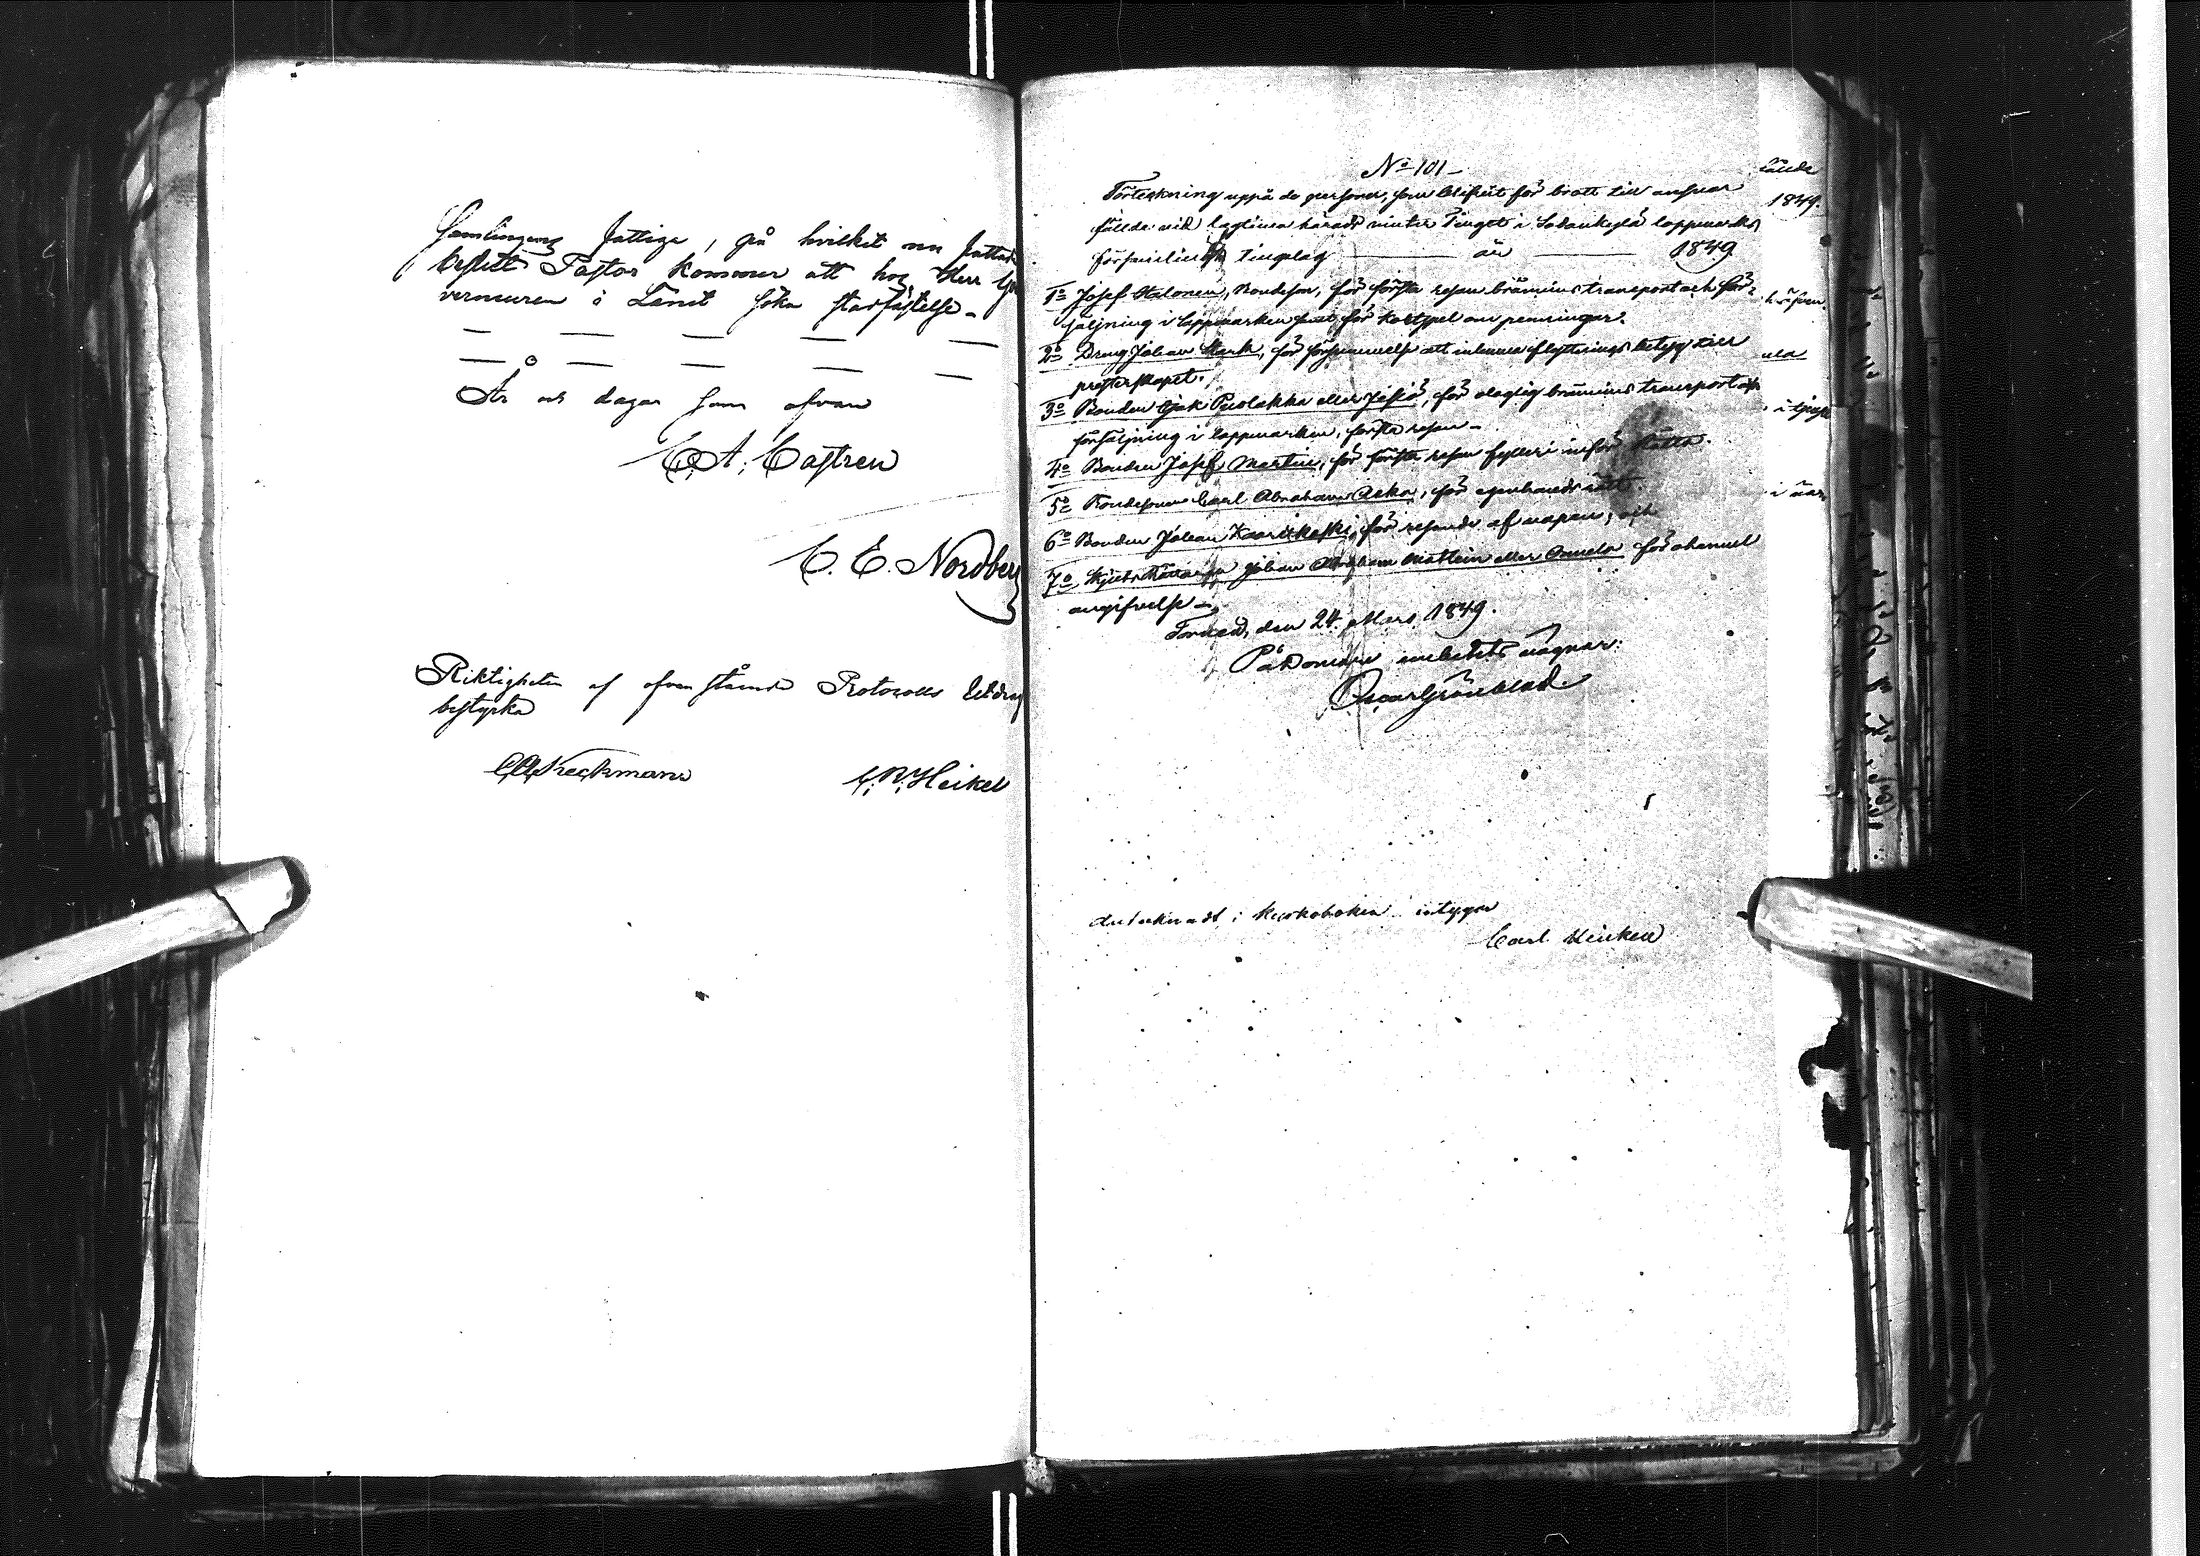 Samlingens fattige, på hvilket nu fattade
beslut Pastor kommer att hos Herr
verneuren i Länet söka stadfästelse.
År och dagar som ofvan
C. A. Castren
C. E. Nordberg
Riktigheten af ofvanstående Protocolls Utdrag
bestyrka
C. R. Heikel
No 101
Förteckning uppå de personer, som blifvit för brott till answar
fällde vid lagtima härads vinter Tinget i Sodankylä lappmarks
Tingslag år 1849.
1o Josef Halonen, Bondeson, för första resan bränvins transport och för-
säljning i Lappmarken samt för kortspel om penningar.
2o Dräng Johan Stark, för försummelse att inlemna flyttnings betyg till
presterskapet.
3o Bonden Isak Puolakka eller Jeskö, för olaglig bränvins transport och
försäljning i lappmarken, första resan
4o Bonden Josef Martin, för första resan fylleri inför Rätta.
5o Bondesonen Carl Abraham Aska, för egenhands rätt.
6o Bonden Johan Kaarikoski, för resande af vapen, och
7o Johan Abraham eller Onnela för
angifvelse
Torneå, den 24 Mars 1849.
På Domare embetets vägnar:
Oscar Grönblad.
Antecknadt i kyrkoboken intygar
Carl Heikel
fällde
1849.